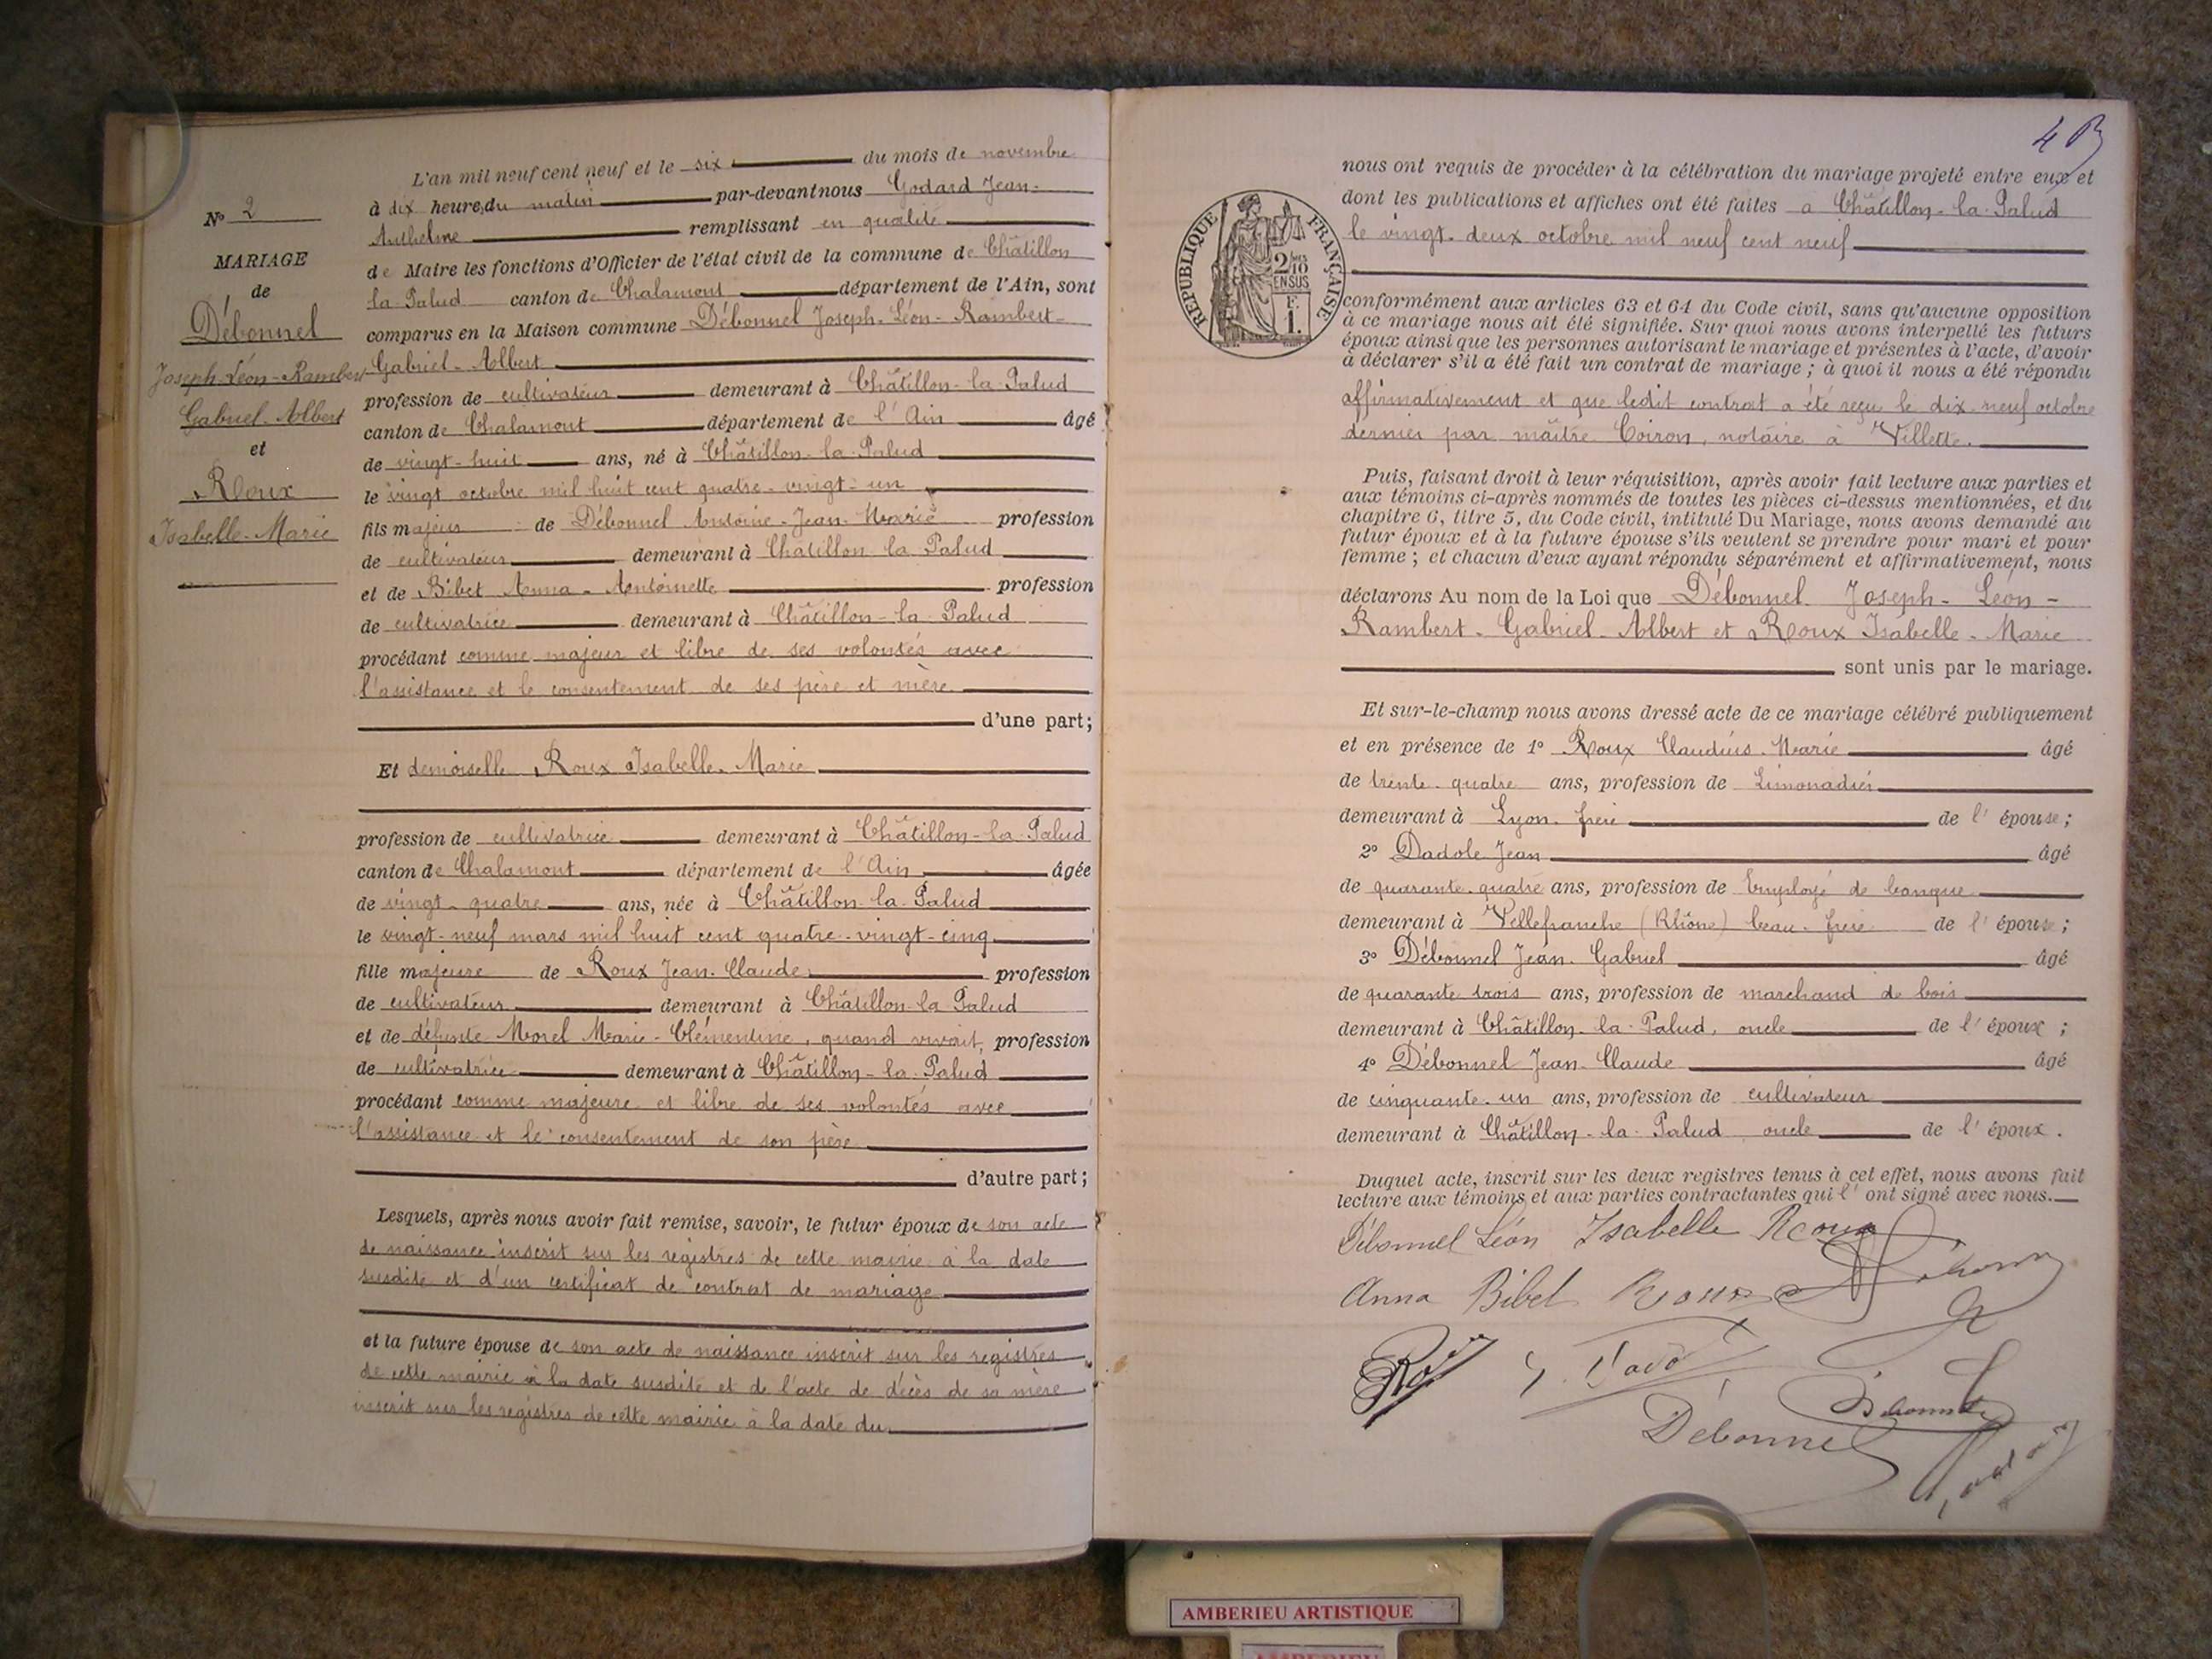 N° 2
MARIAGE
de
Débonnel
Joseph-Léon-Rambert
Gabriel-Albert
et
Roux
Isabelle-Marie
L'an mil neuf cent neuf et le six du mois de novembre
à dix heures du matin par-devant nous Godard Jean-
Anthelme remplissant en qualité
de Maire les fonctions d'Officier de l'état civil de la commune de Châtillon
la Palud canton de Chalamont département de l'Ain, sont
comparus en la Maison commune Débonnel Joseph-Léon-Rambert-
Gabriel-Albert
profession de cultivateur demeurant à Châtillon-la-Palud
canton de Chalamont département de l'Ain âgé
de vingt-huit ans, né à Châtillon-la-Palud
le vingt octobre mil huit cent quatre-vingt-un
fils majeur de Débonnel Antoine-Jean-Marie profession
de cultivateur demeurant à Châtillon-la-Palud
et de Bibet Anna-Antoinette profession
de cultivatrice demeurant à Châtillon-la-Palud
procédant comme majeur et libre de ses volontés avec
l'assistance et le consentement de ses père et mère
d'une part;
Et demoiselle Roux Isabelle-Marie
profession de cultivatrice demeurant à Châtillon-la-Palud
canton de Chalamont département de l'Ain âgée
de vingt-quatre ans, née à Châtillon-la-Palud
le vingt-neuf mars mil huit cent quatre-vingt-cinq
fille majeure de Roux Jean-Claude profession
de cultivateur demeurant à Châtillon-la-Palud
et de défunte Morel Marie-Clémentine, quand vivait, profession
de cultivatrice demeurant à Châtillon-la-Palud
procédant comme majeure et libre de ses volontés avec
l'assistance et le consentement de son père
d'autre part;
Lesquels, après nous avoir fait remise, savoir, le futur époux de son acte
de naissance inscrit sur les registres de cette mairie à la date
susdite et d'un certificat de contrat de mariage
et la future épouse de son acte de naissance inscrit sur les registres
de cette mairie à la date susdite et de l'acte de décès de sa mère
inscrit sur les registres de cette mairie à la date du
4
RÉPUBLIQUE FRANÇAISE
2/10 EN SUS
F.
1.
nous ont requis de procéder à la célébration du mariage projeté entre eux et
dont les publications et affiches ont été faites à Châtillon-la-Palud
le vingt-deux octobre mil neuf cent neuf
conformément aux articles 63 et 64 du Code civil, sans qu'aucune opposition
à ce mariage nous ait été signifiée. Sur quoi nous avons interpellé les futurs
époux ainsi que les personnes autorisant le mariage et présentes à l'acte, d'avoir
à déclarer s'il a été fait un contrat de mariage; à quoi il nous a été répondu
affirmativement et que ledit contrat a été reçu le dix-neuf octobre
dernier par maître Coiron, notaire à Villette.
Puis, faisant droit à leur réquisition, après avoir fait lecture aux parties et
aux témoins ci-après nommés de toutes les pièces ci-dessus mentionnées, et du
chapitre 6, titre 5, du Code civil, intitulé Du Mariage, nous avons demandé au
futur époux et à la future épouse s'ils veulent se prendre pour mari et pour
femme; et chacun d'eux ayant répondu séparément et affirmativement, nous
déclarons Au nom de la Loi que Débonnel Joseph-Léon-
Rambert-Gabriel-Albert et Roux Isabelle-Marie
sont unis par le mariage.
Et sur-le-champ nous avons dressé acte de ce mariage célébré publiquement
et en présence de 1° Roux Claudius-Marie âgé
de trente-quatre ans, profession de Limonadier
demeurant à Lyon, frère de l'épouse;
2° Dadole Jean âgé
de quarante-quatre ans, profession de Employé de banque
demeurant à Villefranche (Rhône) beau-frère de l'épouse;
3° Débonnel Jean-Gabriel âgé
de quarante trois ans, profession de marchand de bois
demeurant à Châtillon-la-Palud, oncle de l'époux;
4° Débonnel Jean-Claude âgé
de cinquante-un ans, profession de cultivateur
demeurant à Châtillon-la-Palud oncle de l'époux.
Duquel acte, inscrit sur les deux registres tenus à cet effet, nous avons fait
lecture aux témoins et aux parties contractantes qui l'ont signé avec nous.
Débonnel Léon Isabelle Roux
Anna Bibet Roux
Débonnel
AMBERIEU ARTISTIQUE
AMBERIEU